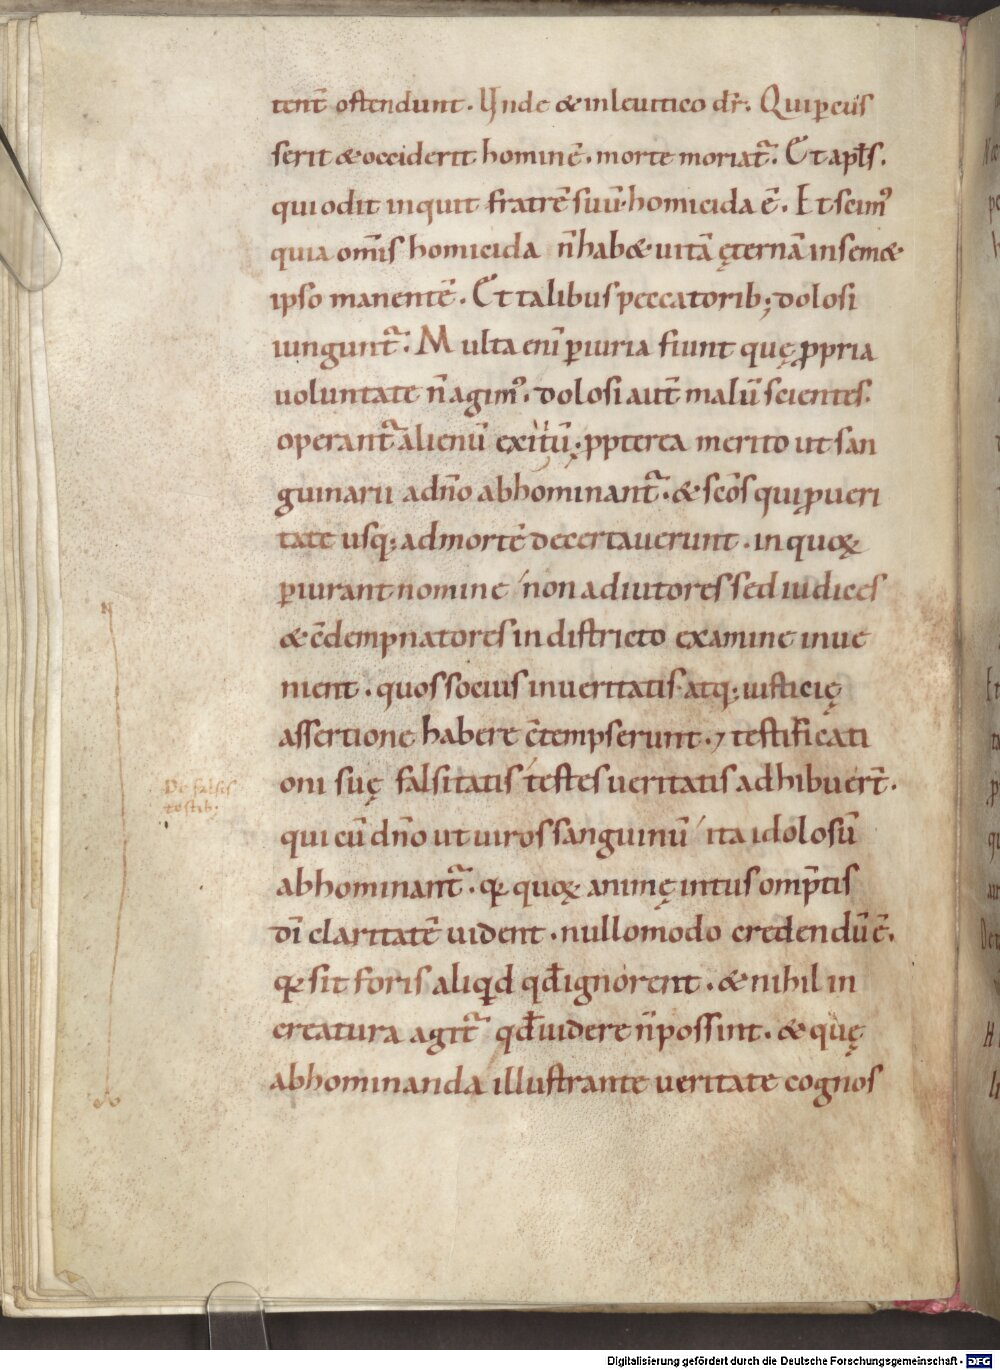 tent̄ ostendunt. Unde & in leuitico dr̄. Qui ꝑcus
serit & occiderit hominē. morte moriat̄. Et apl̄s.
qui odit inquit fratrē suū homicida ē. Et scimꝰ
quia omīs homicida n̄ hab& uitā ęternā in sem&
ipso manentē. Et talibus peccatorib; dolosi
iungunt̄. Multa enī ꝑiuria fiunt quę ꝓpria
uoluntate n̄ agimꝰ. dolosi aut̄ malū scientes.
operant̄ alienū exitiū. ꝓpterea merito ut san
guinarii a dn̄o abhominant̄. & scōs qui ꝓ ueri
tate usq; ad mortē decertauerunt. in quoꝝ
ꝑiurant nomine non adiutores sed iudices
& c̄dempnatores in districto examine inue
nient. quos socius in ueritatis atq; iusticię
assertione habere c̄tempserunt. ⁊ testificati
oni suę falsitatis testes ueritatis adhibuert̄.
qui cū dn̄o ut uiros sanguinū ita & dolosū
abhominant̄. qꝛ quoꝝ animę intus omp̄tis
dī claritatē uident. nullomodo credendū ē.
qꝛ sit foris aliqd qđ ignorent. & nihil in
creatura agit̄ qđ uidere n̄ possint. & quę
abhominanda illustrante ueritate cognos
De falsis
testib;
Digitalisierung gefördert durch die Deutsche Forschungsgemeinschaft - DFG